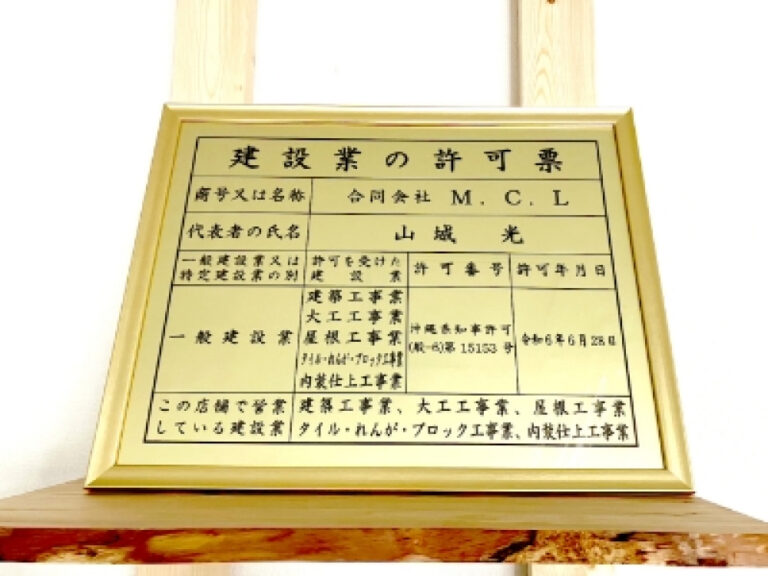 建設業の許可票
商号又は名称 合同会社 M.C.L
代表者の氏名 山城 光
一般建設業又は特定建設業の別 許可を受けた建設業 許可番号 許可年月日
一般建設業
建築工事業
大工工事業
屋根工事業
タイル・れんが・ブロック工事業
内装仕上工事業
沖縄県知事許可
(般-6)第 15153 号
令和6年6月28日
この店舗で営業している建設業
建築工事業、大工工事業、屋根工事業
タイル・れんが・ブロック工事業、内装仕上工事業